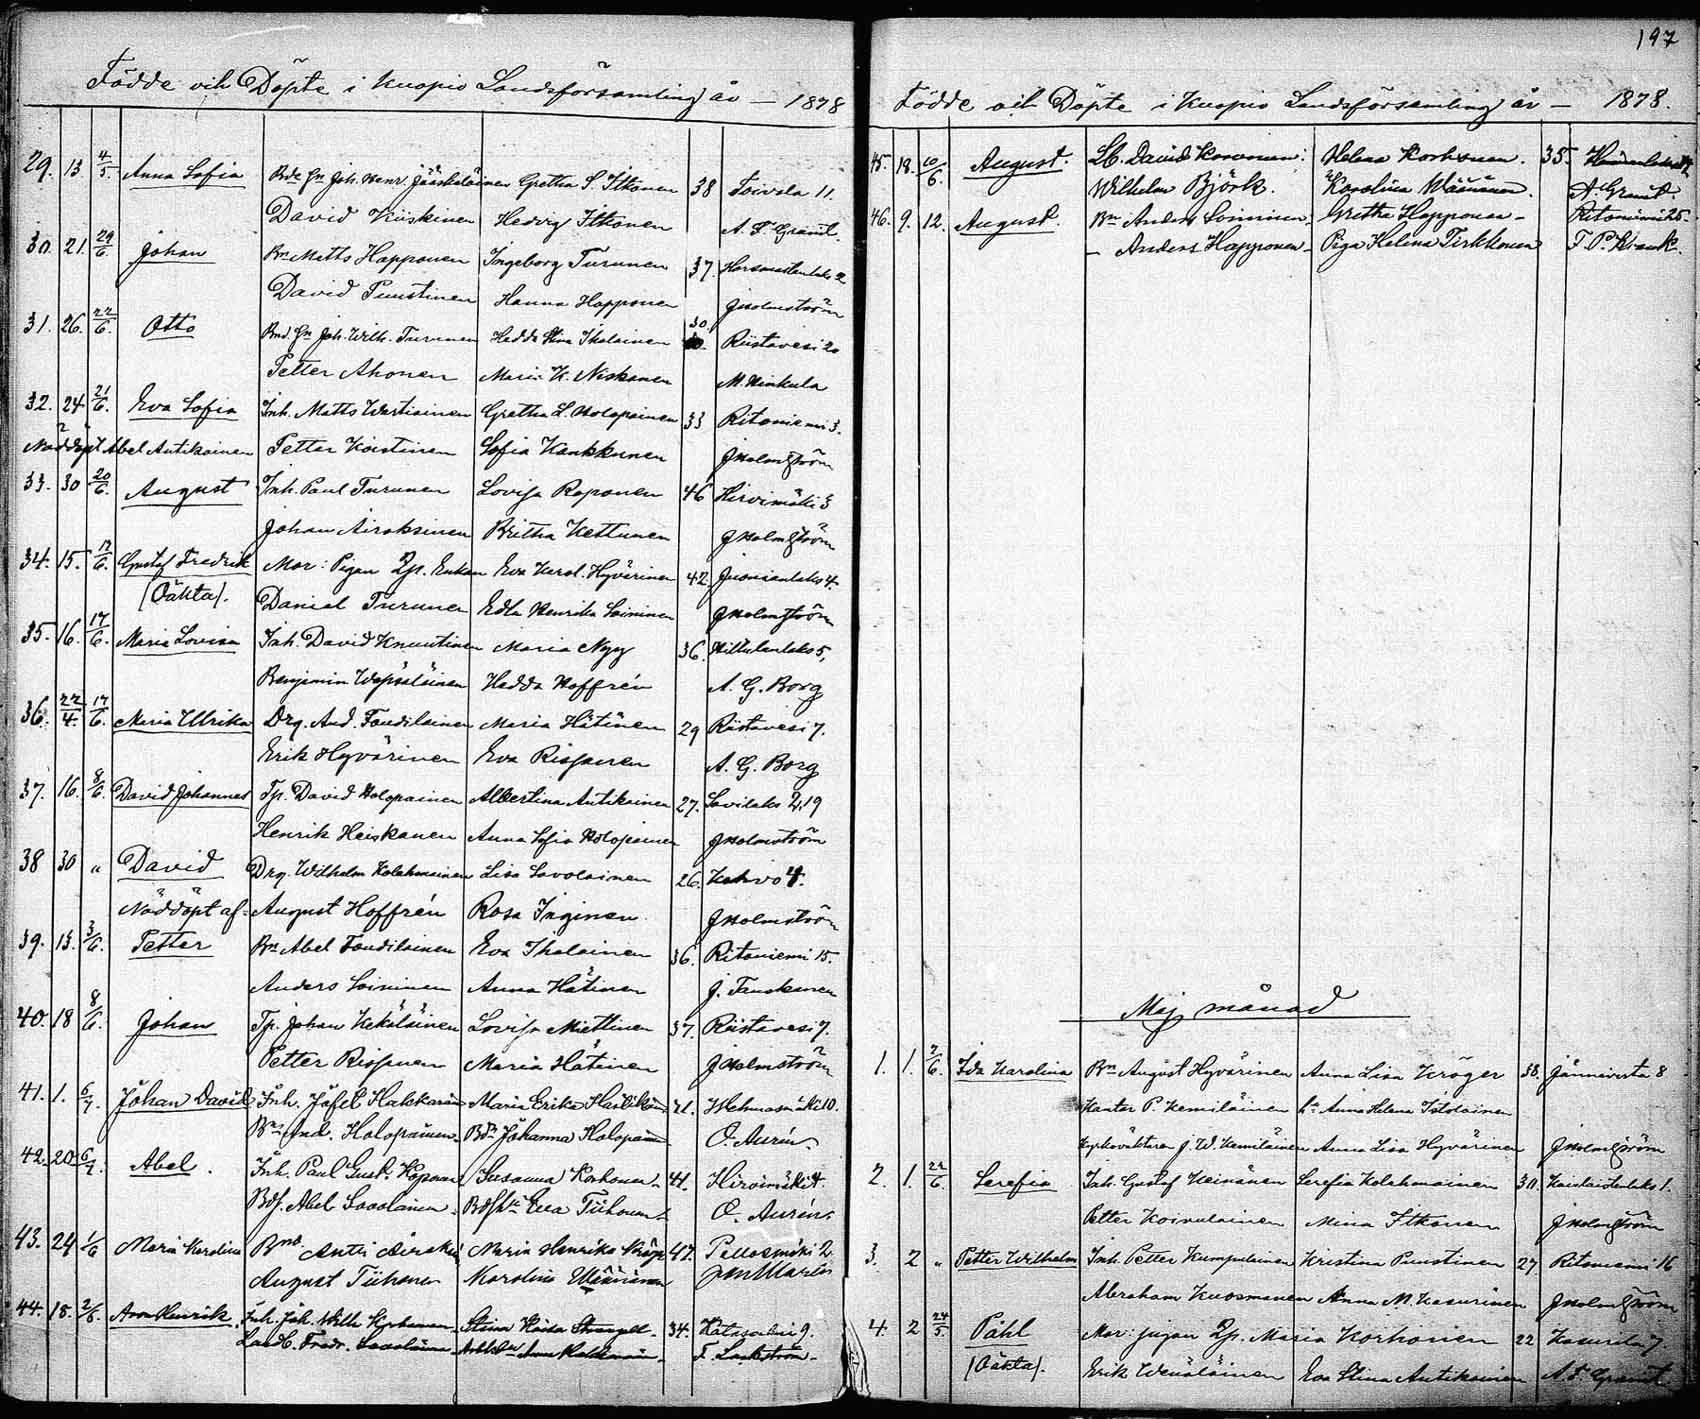 Födde och Döpte i Kuopio Landsförsamling år — 1878
29. 13 4/5. Anna Sofia Joh. Henr. Jääskeläinen Gretha S. Itkonen 38 Toivala 11.
David Kiiskinen Hedvig Itkonen A. F. Granit.
30. 21. 29/6 Johan Bn Matts Happonen Ingeborg Turunen 37.
David Puustinen Hanna Happonen J Holmström
31. 26. 22/6. Otto Joh. Wilh. Turunen Hedda Stina Ikalainen 30 Riistavesi 20
Petter Ahonen Maria K. Niskanen M. Hinkula
32. 24 21/6. Eva Sofia Inh. Matts Wartiainen Gretha L. Holopainen 33 Ritoniemi 3.
Nöddöpt Abel Antikainen Petter Koistinen Sofia Kankkunen J Holmström
33. 30 20/6. August Inh. Paul Turunen Lovisa Raponen 46 Hirvimäki 3
Johan Airaksinen Britha Kettunen J Holmström
34. 15. 17/6. Gustaf Fredrik Mor: Pigan Eva Karol. Hyvärinen 42.
(Oäkta). Daniel Turunen Edla Henrika Soininen J Holmström
35. 16. 17/6. Maria Lovisa Inh. David Knuutinen Maria Nyy 36. Hiltulanlaks 5,
Benjamin Wepsäläinen Hedda Hoffrén A. G. Borg
36. 22/4. 17/6. Maria Ulrika Drg. And. Taudilainen Maria Hätinen 29 Riistavesi 7.
Erik Hyvärinen Eva Rissanen A. G. Borg
37. 16. 8/6. David Johannes Tp. David Holopainen Albertina Antikainen 27. Savilaks 2,19
Henrik Heiskanen Anna Sofia Holopainen J Holmström
38 30 " David Drg. Wilhelm Kolehmainen Lisa Savolainen 26. Kahvo 4.
Nöddöpt af August Hoffrén Rosa Inginen J Holmström
39. 13. 3/6. Petter Bn Abel Taudilainen Eva Ikalainen 36. Ritoniemi 15.
Anders Soininen Anna Hätinen J. Tauskanen
40. 18 8/6. Johan Tp. Johan Kekäläinen Lovisa Miettinen 37. Riistavesi 7.
Petter Rissanen Maria Hätinen J Holmström
41. 1. 6/7. Johan David Inh. Maria Erika 21.
And. Holopainen Johanna Holopainen O. Aurén
42. 20 6/7. Abel. Inh. Paul Gust. Susanna Korhonen 41. Hirvimäki 4.
Abel Savolainen Eva Tiihonen O. Aurén.
43. 24 1/6 Maria Karolina Antti Maria Henrika 47. Pellosmäki 2
August Tiihonen Karolina Väänänen
44. 18. 2/6. Henrik Inh. Joh. Wilh Stina 34. 9.
Fredr. Savolainen
197
Födde och Döpte i Kuopio Landsförsamling år — 1878.
45. 18. 10/6. August. David Korhonen. Helena Korhonen. 35.
Wilhelm Björk. Karolina Väänänen. A Granit.
46. 9. 12. August. Bn Anders Soininen Gretha Happonen Ritoniemi 25.
Anders Happonen Piga Helena Tirkkonen
Maj månad
1. 1. 7/6. Ida Karolina Bn August Hyvärinen Anna Lisa Kröger 38. Jännevirta 8
Kantor P. Kemiläinen Anna Helena Istolainen
Kyrkoväktaren J. W. Kemiläinen Anna Lisa Hyvärinen J Holmström
2. 1. 22/6. Serefia Inh. Gustaf Keinänen Serefia Kolehmainen 30.
Petter Koivulainen Mina Itkonen J Holmström
3. 2 " Petter Wilhelm Inh. Petter Kumpulainen Kristina Puustinen 27 Ritoniemi 16
Abraham Kuosmanen Anna M. Kasurinen J Holmström
4. 2 24/5. Påhl Mor: pigan Maria Korhonen 22 Kasurila 7.
(Oäkta). Erik Wenäläinen Eva Stina Antikainen A. F. Granit